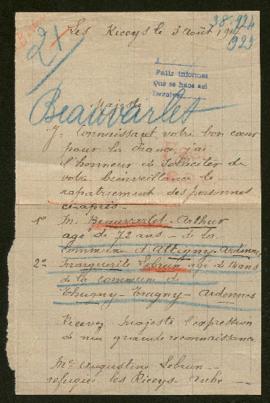 Les Riceys le 3 Août
38.924
923
21
Faits informes
Que se hace así
Beauvarlet
Majesté
Connaissant votre bon cœur
pour la France j'ai
l'honneur de solliciter de
votre bienveillance le
rapatriement des personnes
ci-après
1º M. Beauvarlet Arthur
agé de 72 ans - de la
commune d'Attigny Ardennes
2º Marguerite Lebrun agée de ans
de la commune de
Thugny-Trugny - Ardennes
Recevez majesté l'expression
de ma grande reconnaissance
Mme Augustine Lebrun
refugiée les Riceys Aube